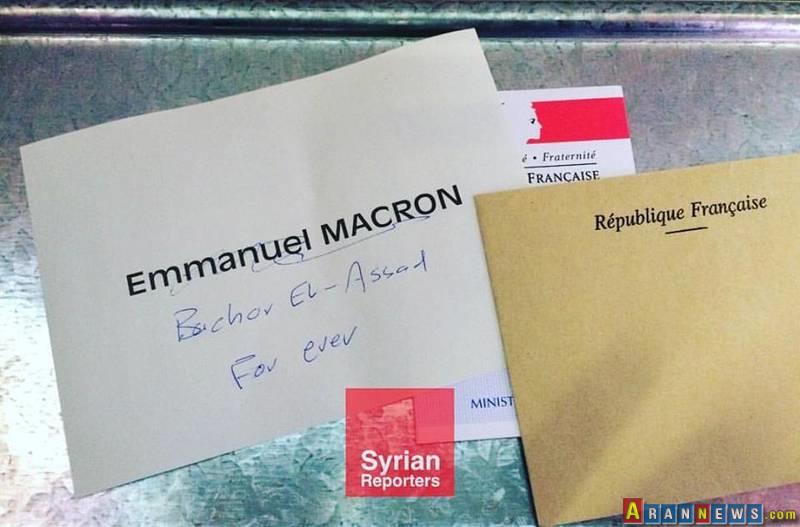 é • Fraternité
FRANÇAISE
République Française
Emmanuel MACRON
Bachar El-Assad
For ever
MINIST
Syrian
Reporters
ARANNEWS.com